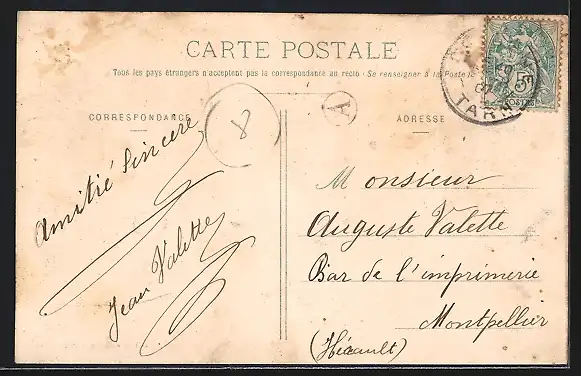 CARTE POSTALE
Tous les pays étrangers n'acceptent pas la correspondance au recto (Se renseigner à la Poste)
CORRESPONDANCE
ADRESSE
8
A
TARN
5
POSTES
Amitié Sincère
Jean Valette
Monsieur
Auguste Valette
Bar de l'imprimerie
Montpellier
(Hérault)